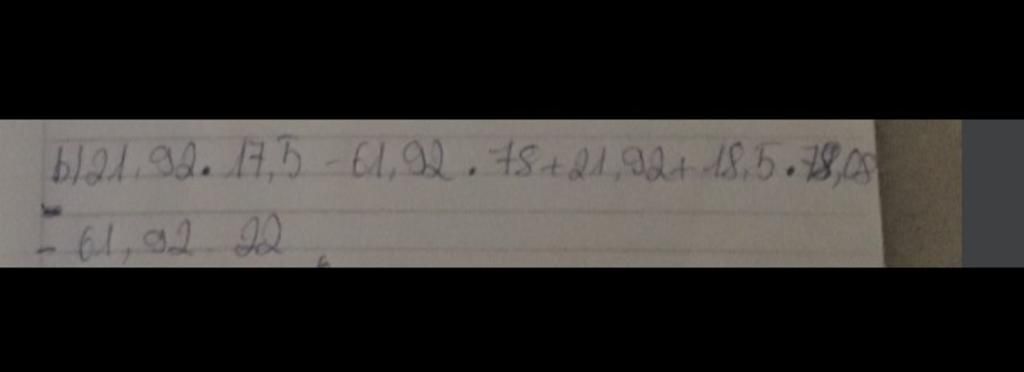 b) 21,92 . 17,5 - 61,92 . 78 + 21,92 + 18,5 . 78,08
- 61,92 22